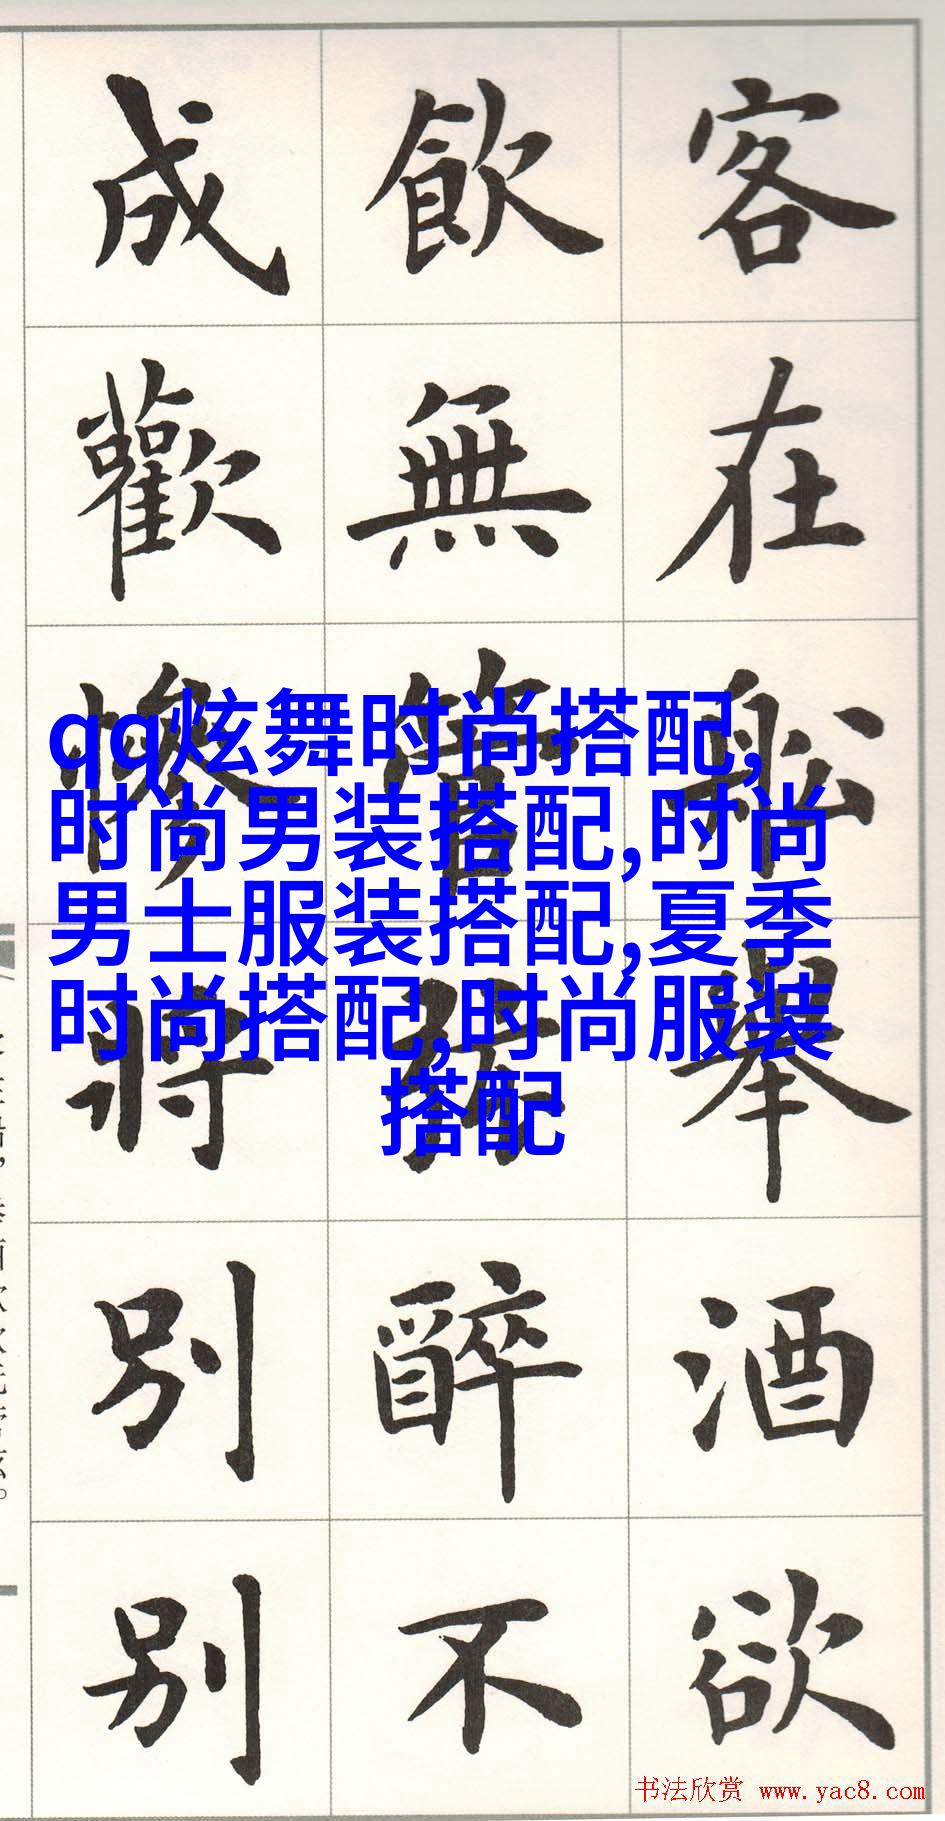 客在船舉酒欲
飲無管絃醉不
成歡慘將別別
qq炫舞时尚搭配,
时尚男装搭配,时尚
男士服装搭配,夏季
时尚搭配,时尚服装
搭配
书法欣赏 www.yac8.com